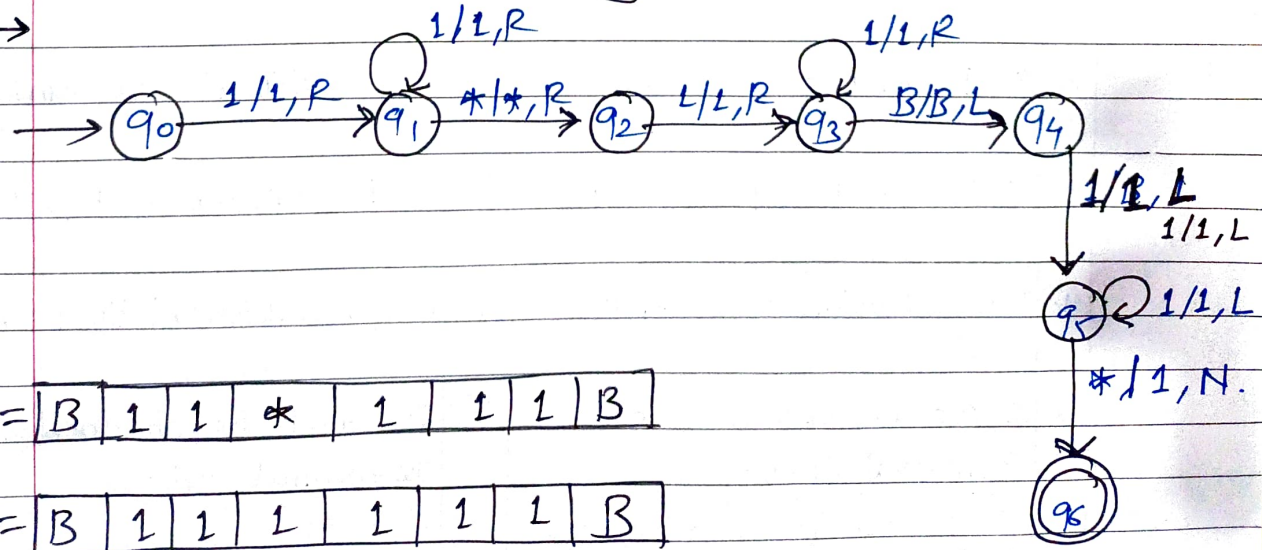 1/1,R 1/1,R
→ q0 1/1,R q1 */*,R q2 1/1,R q3 B/B,L q4
1/1,L
1/1,L
q5 1/1,L
*/1,N.
= B 1 1 * 1 1 1 B
q6
= B 1 1 1 1 1 1 B